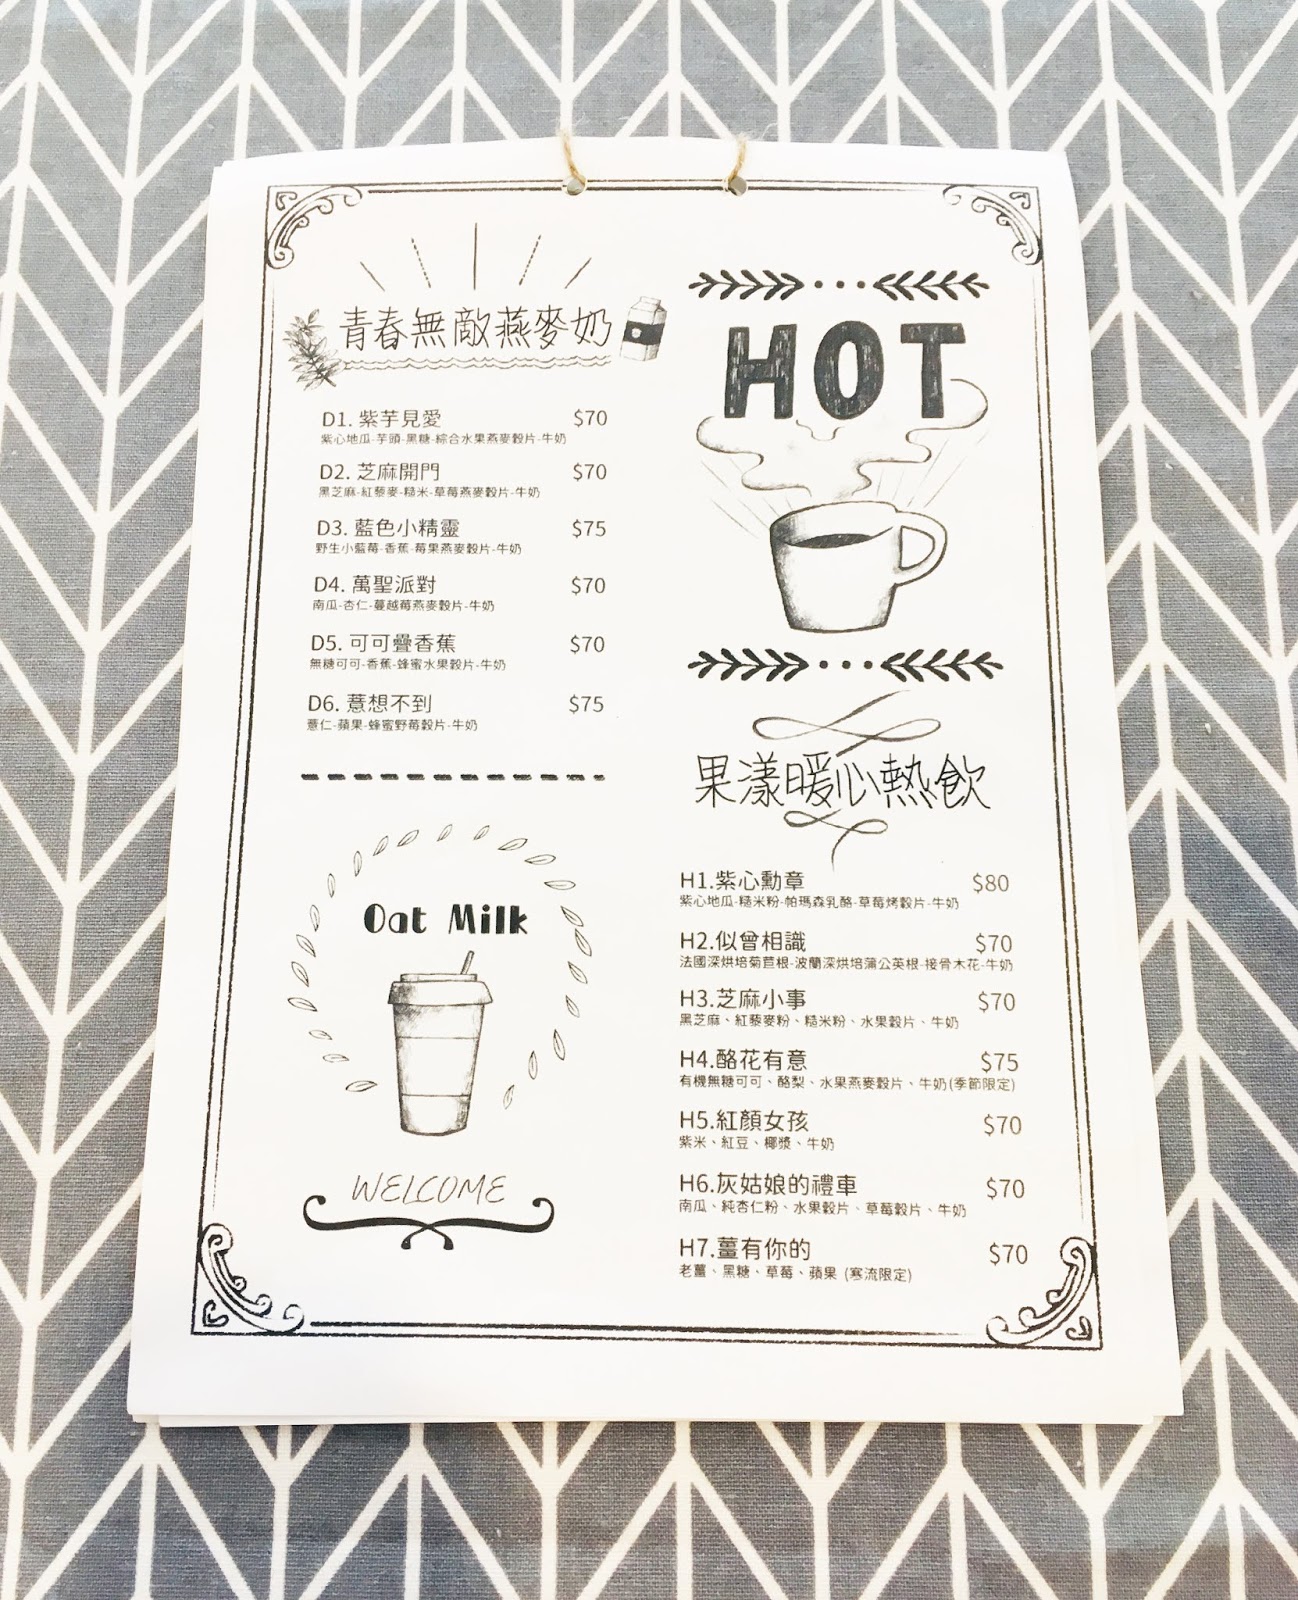 青春無敵燕麥奶
D1. 紫芋見愛 $70
紫心地瓜-芋頭-黑糖-綜合水果燕麥穀片-牛奶
D2. 芝麻開門 $70
黑芝麻-紅藜麥-糙米-草莓燕麥穀片-牛奶
D3. 藍色小精靈 $75
野生小藍莓-香蕉-莓果燕麥穀片-牛奶
D4. 萬聖派對 $70
南瓜-杏仁-蔓越莓燕麥穀片-牛奶
D5. 可可疊香蕉 $70
無糖可可-香蕉-蜂蜜水果穀片-牛奶
D6. 薏想不到 $75
薏仁-蘋果-蜂蜜野莓穀片-牛奶
Oat Milk
WELCOME
HOT
果漾暖心熱飲
H1.紫心勳章 $80
紫心地瓜-糙米粉-帕瑪森乳酪-草莓烤穀片-牛奶
H2.似曾相識 $70
法國深烘培菊苣根-波蘭深烘培蒲公英根-接骨木花-牛奶
H3.芝麻小事 $70
黑芝麻、紅藜麥粉、糙米粉、水果穀片、牛奶
H4.酪花有意 $75
有機無糖可可、酪梨、水果燕麥穀片、牛奶(季節限定)
H5.紅顏女孩 $70
紫米、紅豆、椰漿、牛奶
H6.灰姑娘的禮車 $70
南瓜、純杏仁粉、水果穀片、草莓穀片、牛奶
H7.薑有你的 $70
老薑、黑糖、草莓、蘋果 (寒流限定)